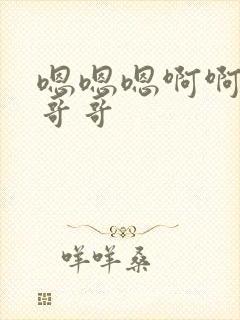 嗯嗯嗯啊啊
哥哥
咩咩桑